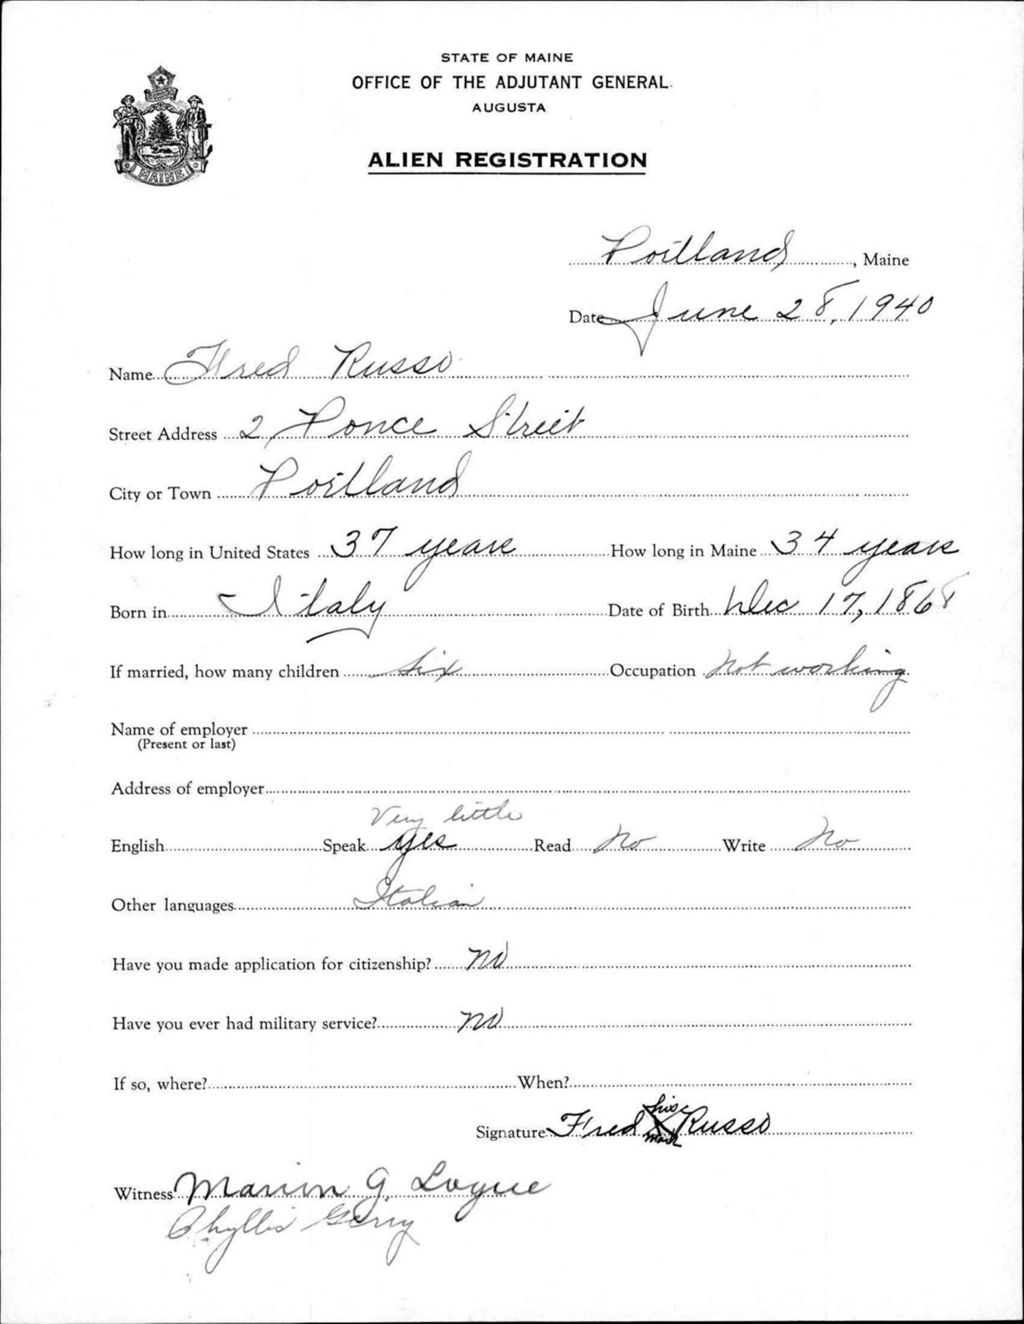 STATE OF MAINE
OFFICE OF THE ADJUTANT GENERAL
AUGUSTA
ALIEN REGISTRATION
MAINE
Portland, Maine
Date June 28, 1940
Name Fred Russo
Street Address 2 Ponce Street
City or Town Portland
How long in United States 37 years How long in Maine 34 years
Born in Italy Date of Birth Dec 17, 1868
If married, how many children six Occupation Not working
Name of employer
(Present or last)
Address of employer
Very little
English Speak yes Read No Write No
Other languages Italian
Have you made application for citizenship? no
Have you ever had military service? no
If so, where? When?
his
Signature Fred X Russo
mark
Witness Marion G. Logue
Phyllis Gerry